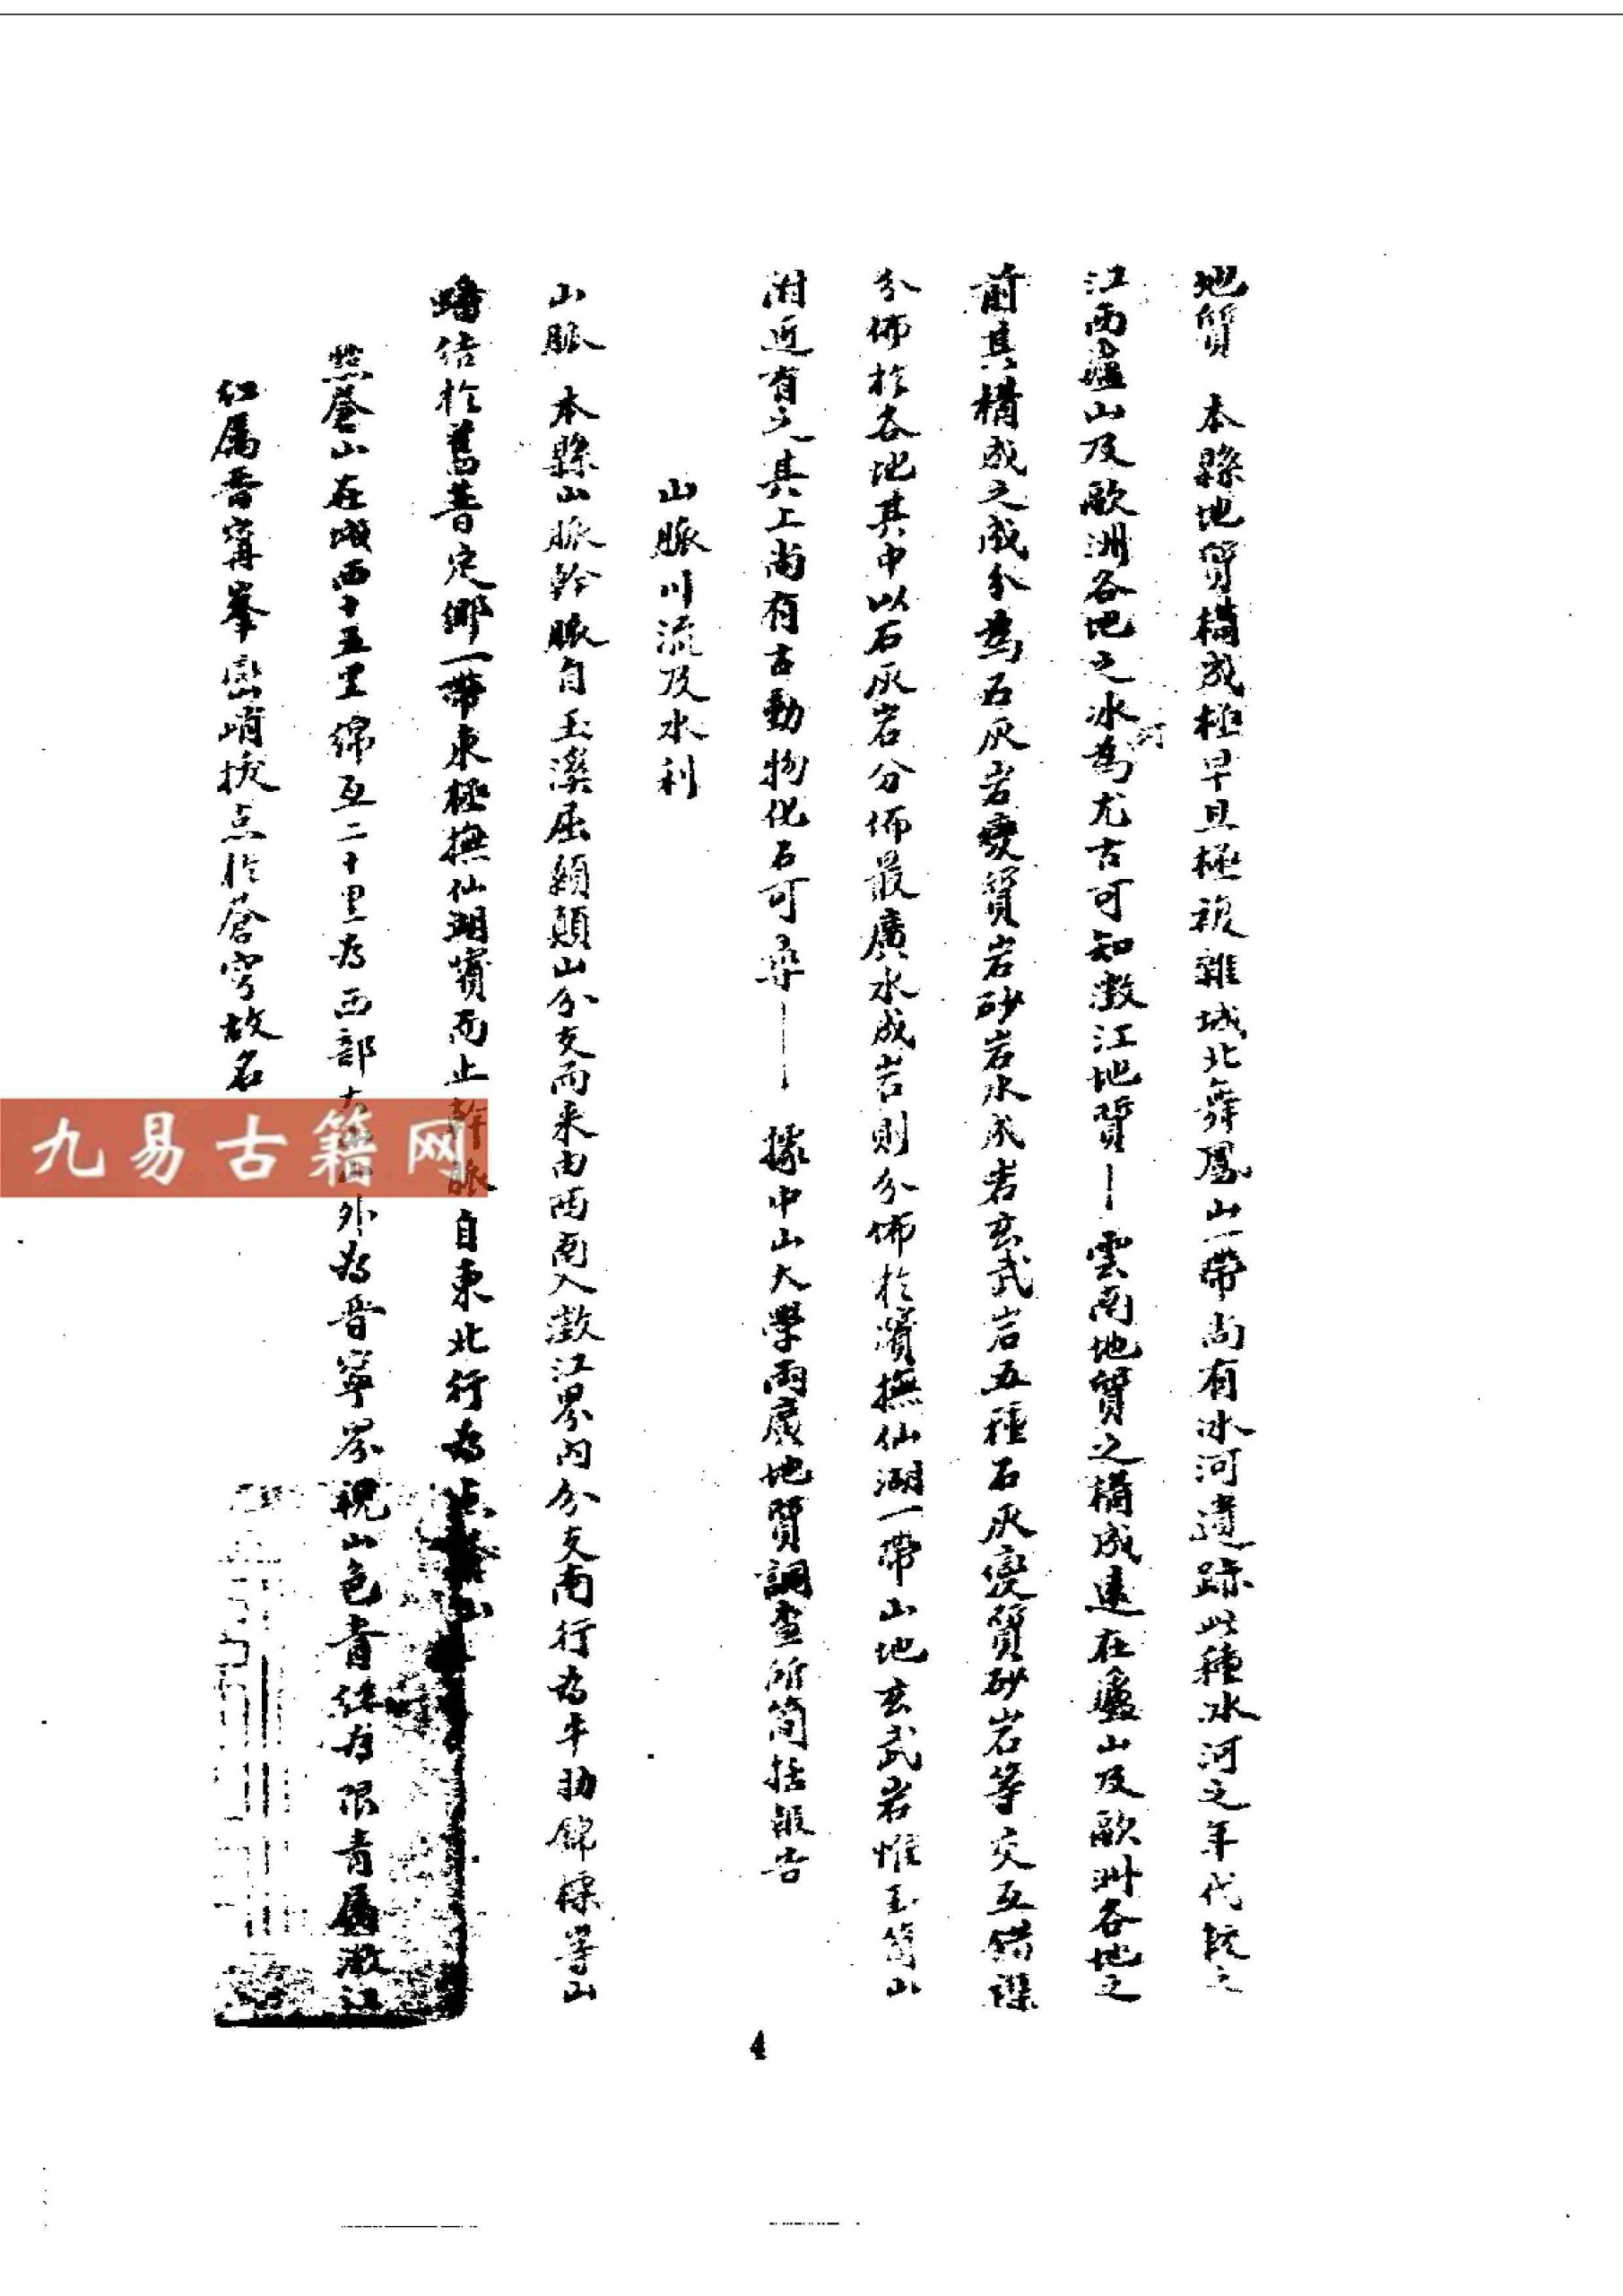 地質　本縣地質構成極早且極複雜城北舞鳳山一帶尚有冰河遺跡此種冰河之年代較之
江西廬山及歐洲各地之冰河為尤古可知澂江地質—雲南地質之構成遠在廬山及歐洲各地之
前其構成之成分為石灰岩變質岩砂岩水成岩玄武岩五種石灰變質砂岩等交互錯雜
分佈於各地其中以石灰岩分佈最廣水成岩則分佈於濱撫仙湖一帶山地玄武岩惟玉筍山
附近有之其上尚有古動物化石可尋——據中山大學兩廣地質調查所簡括報告
山脈川流及水利
山脈　本縣山脈幹脈自玉溪屈顙顛山分支而來由西南入澂江界內分支南行為牛肋錦屏等山
蟠結於舊普定鄉一帶東極撫仙湖濱而止幹脈自東北行為点蒼山
点蒼山在城西十五里綿亙二十里為西部大山山外為晋寧界視山色青紅為限青屬澂江
红屬晋寧峯巒峭拔点於蒼穹故名
4
九易古籍网